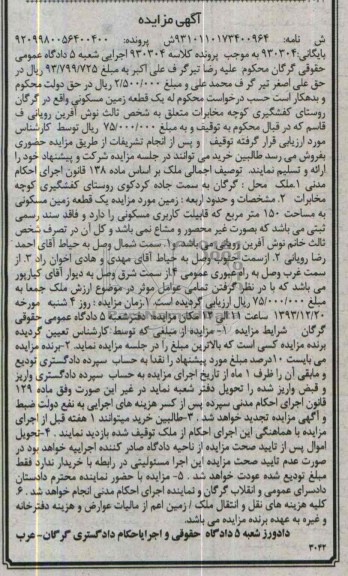 آگهی مزایده
ش نامه: ۹۳۱۰۱۱۰۱۷۳۴۰۰۹۶۴ش پرونده: ۹۲۰۹۹۸۰۰۵۶۴۰۰۴۰۰
بایگانی:۹۳۰۳۰۴ به موجب پرونده کلاسه ۹۳۰۳۰۴ اجرایی شعبه ۵ دادگاه عمومی
حقوقی گرگان محکوم علیه رضا تیرگر ف علی اکبر به مبلغ ۹۳/۷۹۹/۷۲۵ ریال در
حق علی اصغر تیر گر ف محمد علی و مبلغ ۲/۵۰۰/۰۰۰ ریال در حق دولت محکوم
و بدهکار است حسب درخواست محکوم له یک قطعه زمین مسکونی واقع در گرگان
روستای کفشگیری کوچه مخابرات متعلق به شخص ثالث نوش آفرین رویانی ف
قاسم که در قبال محکوم به توقیف و به مبلغ ۷۵/۰۰۰/۰۰۰ ریال توسط کارشناس
مورد ارزیابی قرار گرفته توقیف و پس از انجام تشریفات از طریق مزایده حضوری
بفروش می رسد طالبین خرید می توانند در جلسه مزایده شرکت و پیشنهاد خود را
ارائه و تسلیم نمایند. توصیف اجمالی ملک بر اساس ماده ۱۳۸ قانون اجرای احکام
مدنی ۱ملک محل : گرگان به سمت جاده کردکوی روستای کفشگیری کوچه
مخابرات ۲. مشخصات و حدود اربعه : زمین مورد مزایده یک قطعه زمین مسکونی
به مساحت ۱۵۰ متر مربع که قابلیت کاربری مسکونی را دارد و فاقد سند رسمی
ثبتی می باشد که بصورت غیر محصور و مشاع نمی باشد و کل آن در تصرف شخص
ثالث خانم نوش آفرین رویانی می باشد. و۱. سمت شمال وصل به حیاط آقای احمد
رضا رویانی ۲. ازسمت جنوب وصل به حیاط آقای مهدی و هادی اخوان راد ۳. از
سمت غرب وصل به راه عبوری عمومی ۴.از سمت شرق وصل به دیوار آقای کیارپور
می باشد که با در نظر گرفتن تمامی عوامل موثر در موضوع ارزش ملک جمعا به
مبلغ ۷۵/۰۰۰/۰۰۰ ریال ارزیابی گردیده است. ۱زمان مزایده : روز ۴ شنبه مورخه
۱۳۹۳/۱۲/۲۰ ساعت ۱۱ الی ۱۲ مکان مزایده: دفترشعبه ۵ دادگاه عمومی حقوقی
گرگان شرایط مزایده ۱- مزایده از مبلغی که توسط کارشناس تعیین گردیده
برنده مزایده کسی است که بالاترین مبلغ را در جلسه مزایده نماید. ۲-برنده مزایده
می بایست ۱۰درصد مبلغ مورد پیشنهاد را نقدا به حساب سپرده دادگستری تودیع
و مابقی آن را ظرف ۱ ماه از تاریخ اجرای مزایده به حساب سپرده دادگستری واریز
و قبض واریز شده را تحویل دفتر شعبه نماید در غیر این صورت وفق ماده ۱۲۹
قانون اجرای احکام مدنی سپرده پس از کسر هزینه های اجرایی به نفع دولت ضبط
و آگهی مزایده تجدید خواهد شد . ۳-طالبین خرید میتوانند ۱ هفته قبل از اجرای
مزایده با هماهنگی این اجرای احکام از ملک توقیف شده بازدید نمایند . ۴-تحویل
اموال پس از تایید صحت مزایده از ناحیه دادگاه صادر کننده اجراییه خواهد بود در
صورت عدم تایید صحت مزایده این اجرا مسئولیتی در رابطه با خریدار ندارد فقط
مبلغ تودیع شده عودت خواهد شد . ۵- مزایده با حضور نماینده محترم دادستان
دادسرای عمومی و انقلاب گرگان و نماینده اجرای احکام مدنی انجام خواهد شد . ۶
کلیه هزینه های نقل و انتقال ملک / زمین اعم از مالیات عوارض و هزینه دفترخانه
و غیره به عهده برنده مزایده می باشد.
دادورز شعبه ۵ دادگاه حقوقی و اجرایاحکام دادگستری گرگان- عرب
۳۰۲۲